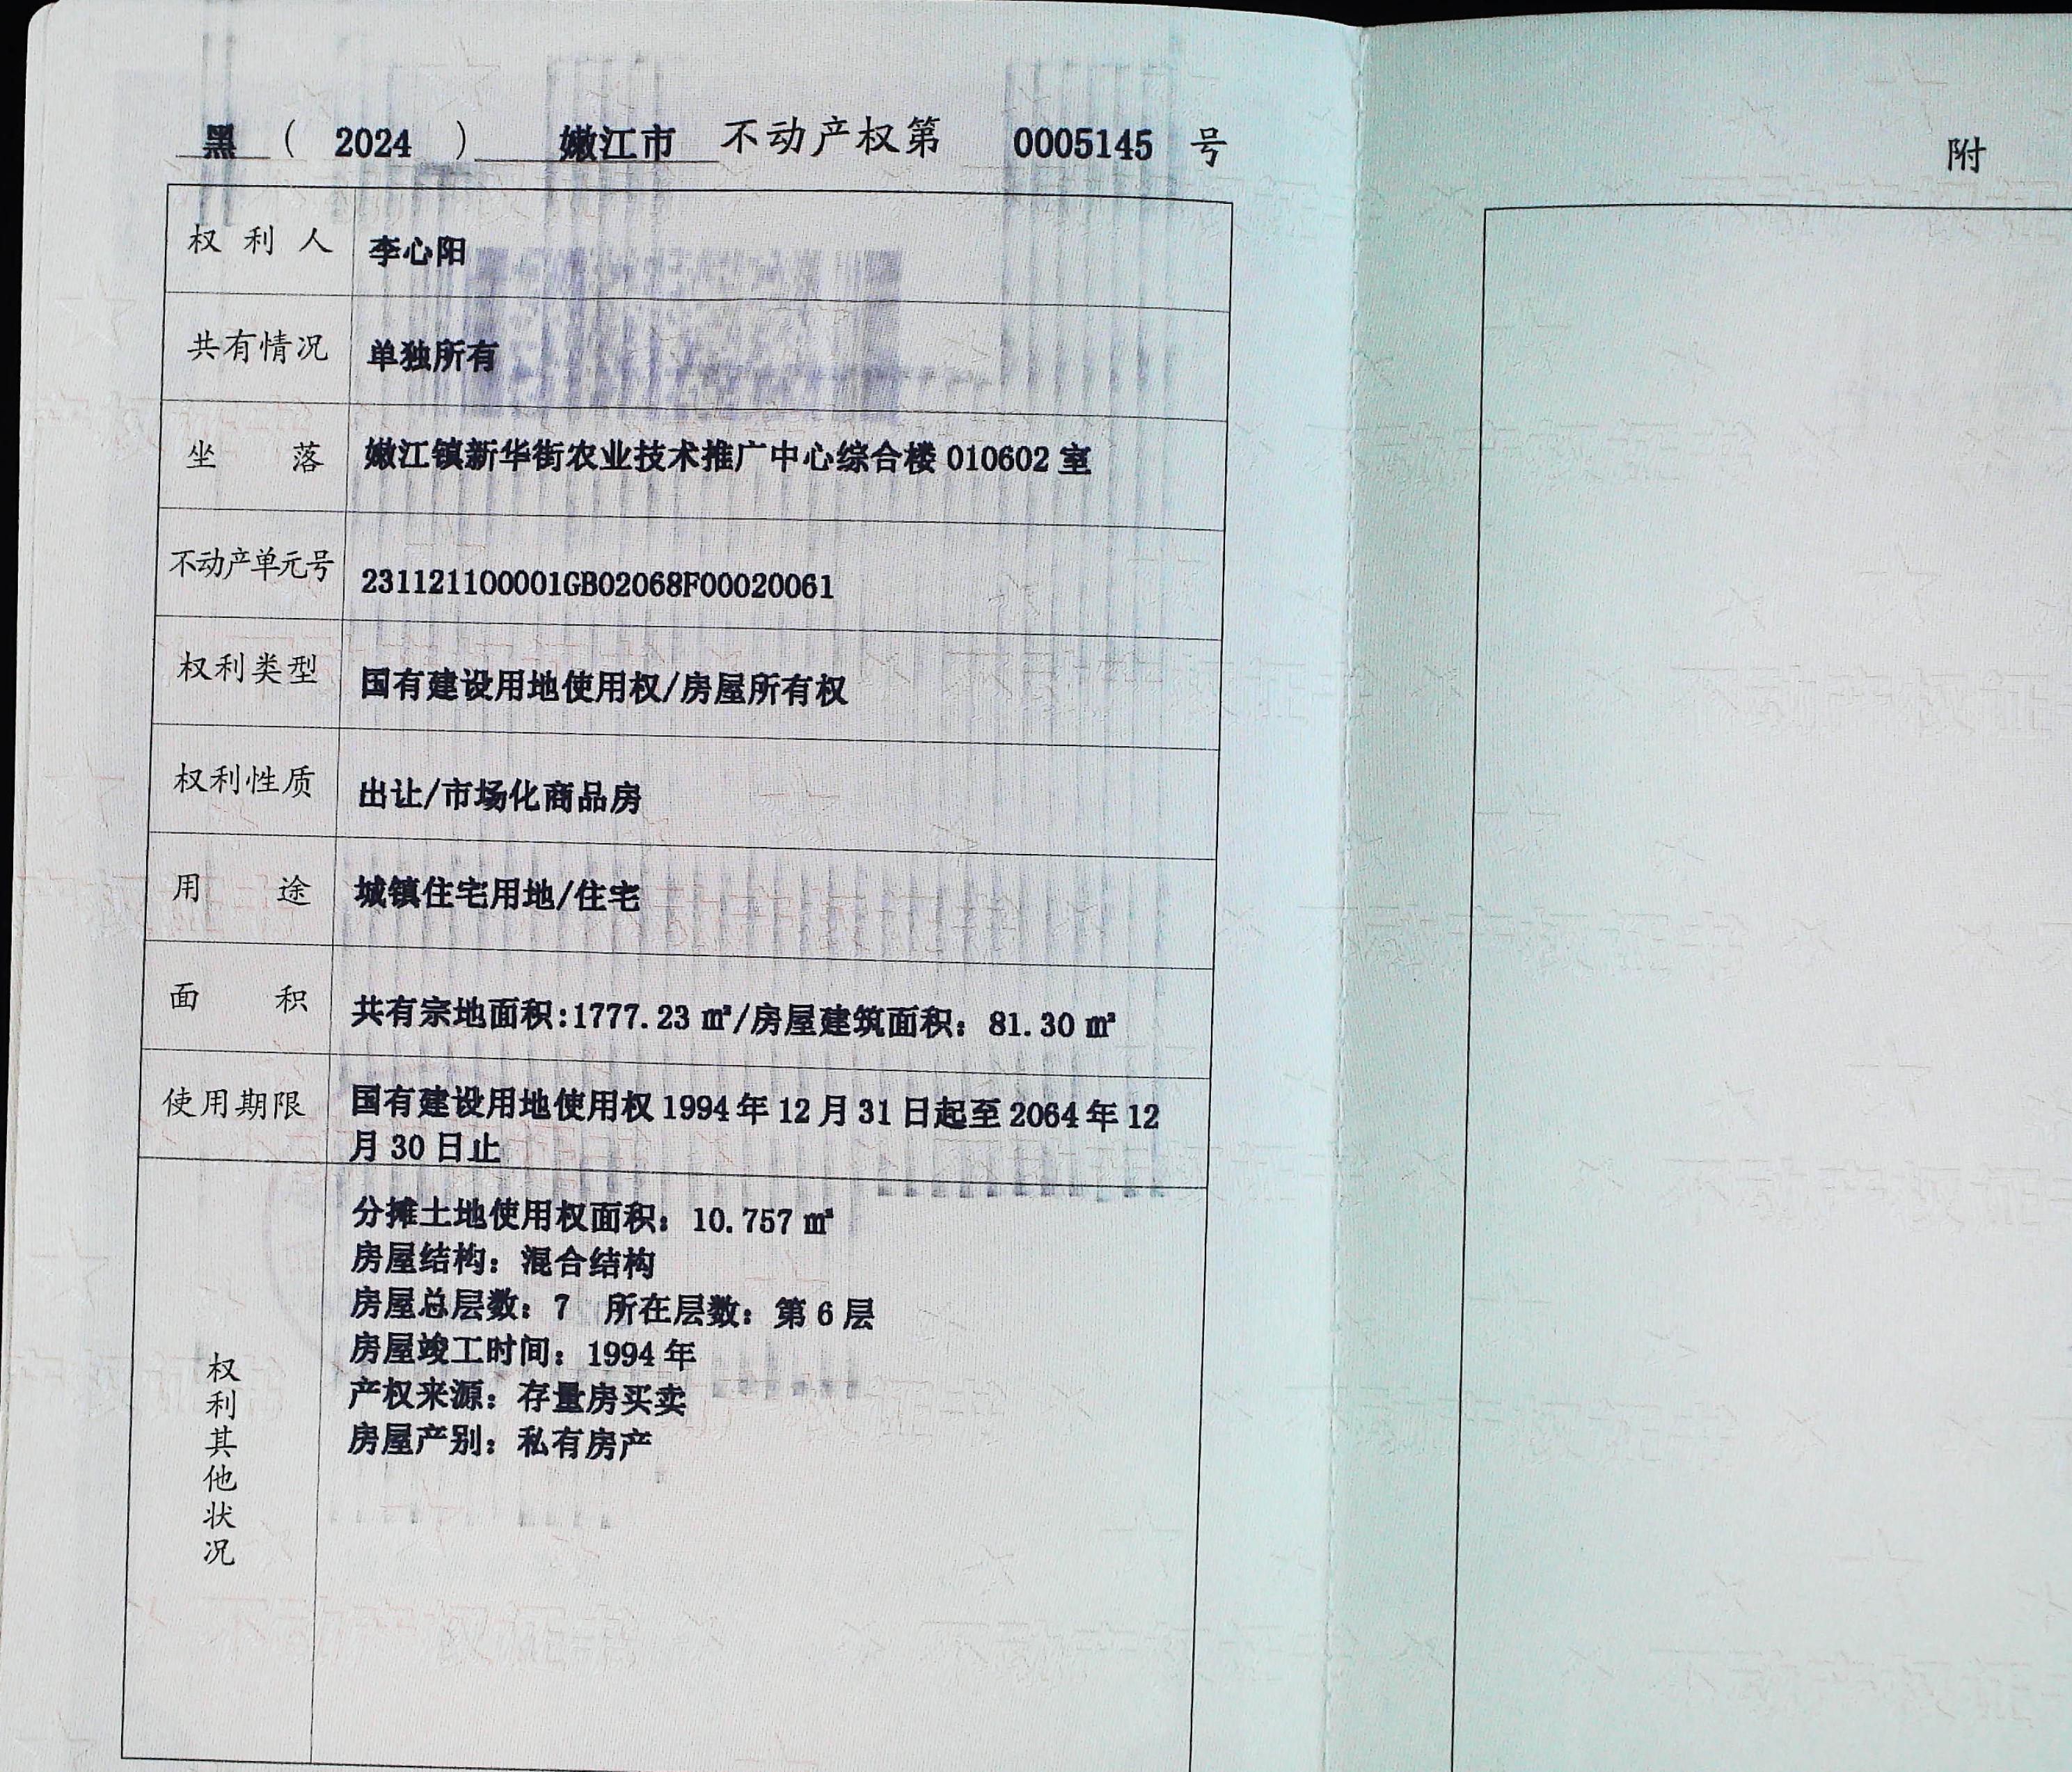 黑 （ 2024 ） 嫩江市 不动产权第 0005145 号
权利人 李心阳
共有情况 单独所有
坐落 嫩江镇新华街农业技术推广中心综合楼 010602 室
不动产单元号 231121100001GB02068F00020061
权利类型 国有建设用地使用权/房屋所有权
权利性质 出让/市场化商品房
用途 城镇住宅用地/住宅
面积 共有宗地面积:1777.23 ㎡/房屋建筑面积：81.30 ㎡
使用期限 国有建设用地使用权 1994 年 12 月 31 日起至 2064 年 12
月 30 日止
权利其他状况
分摊土地使用权面积：10.757 ㎡
房屋结构：混合结构
房屋总层数：7 所在层数：第 6 层
房屋竣工时间：1994 年
产权来源：存量房买卖
房屋产别：私有房产
附